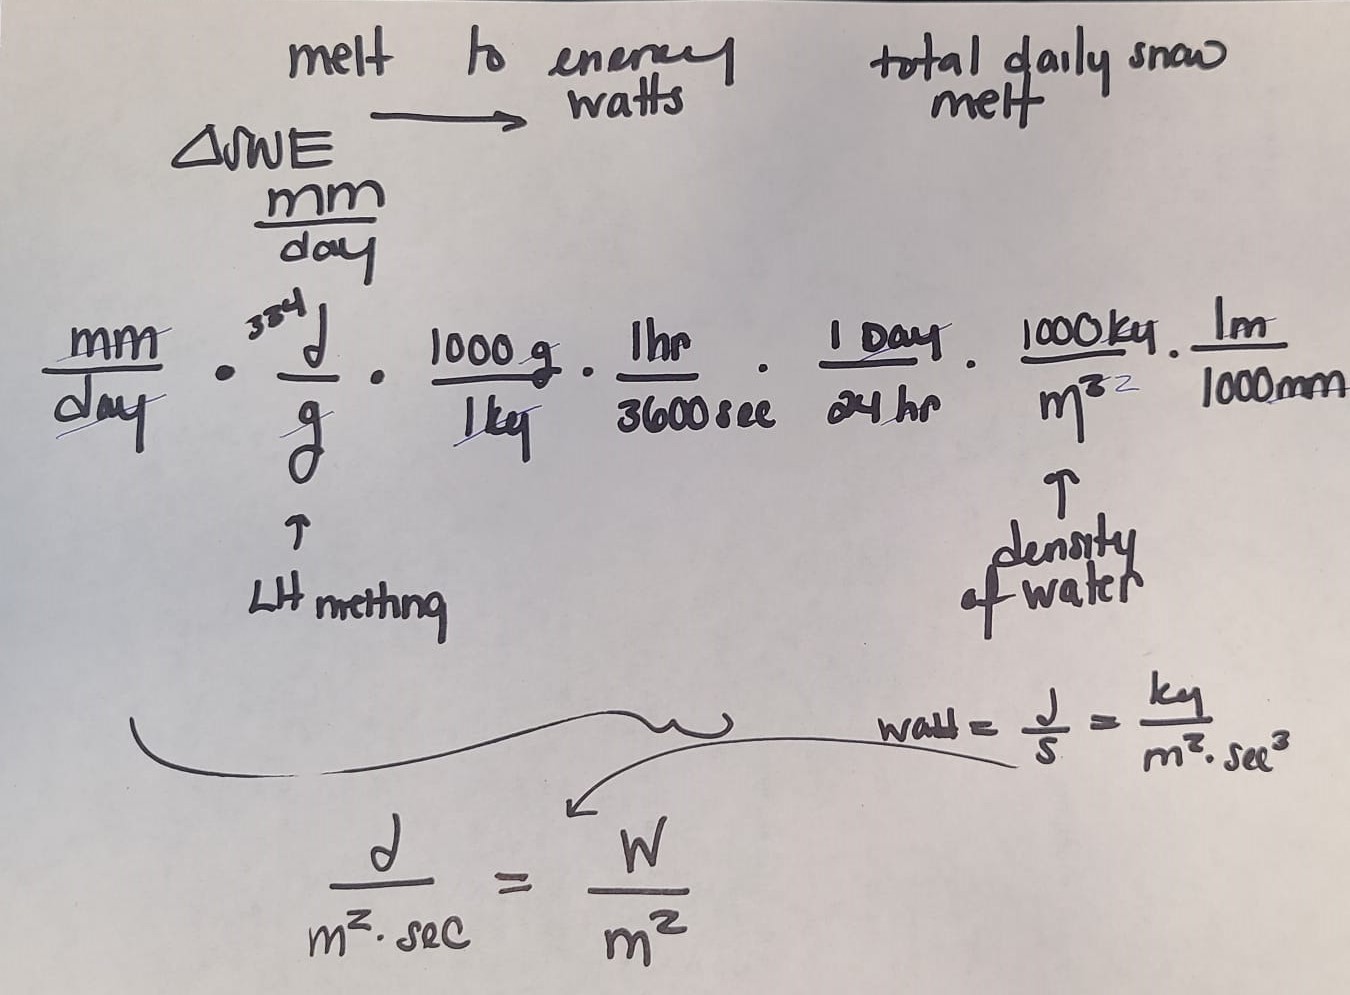 melt to energy total daily snow
watts melt
→
ΔSWE
mm/day
mm/day • 334 J/g • 1000 g/1 kg • 1 hr/3600 sec • 1 Day/24 hr • 1000 kg/m³ ² • 1m/1000mm
↑ ↑
LH melting density
of water
watt = J/s = kg/m²·sec³
J/m²·sec = W/m²